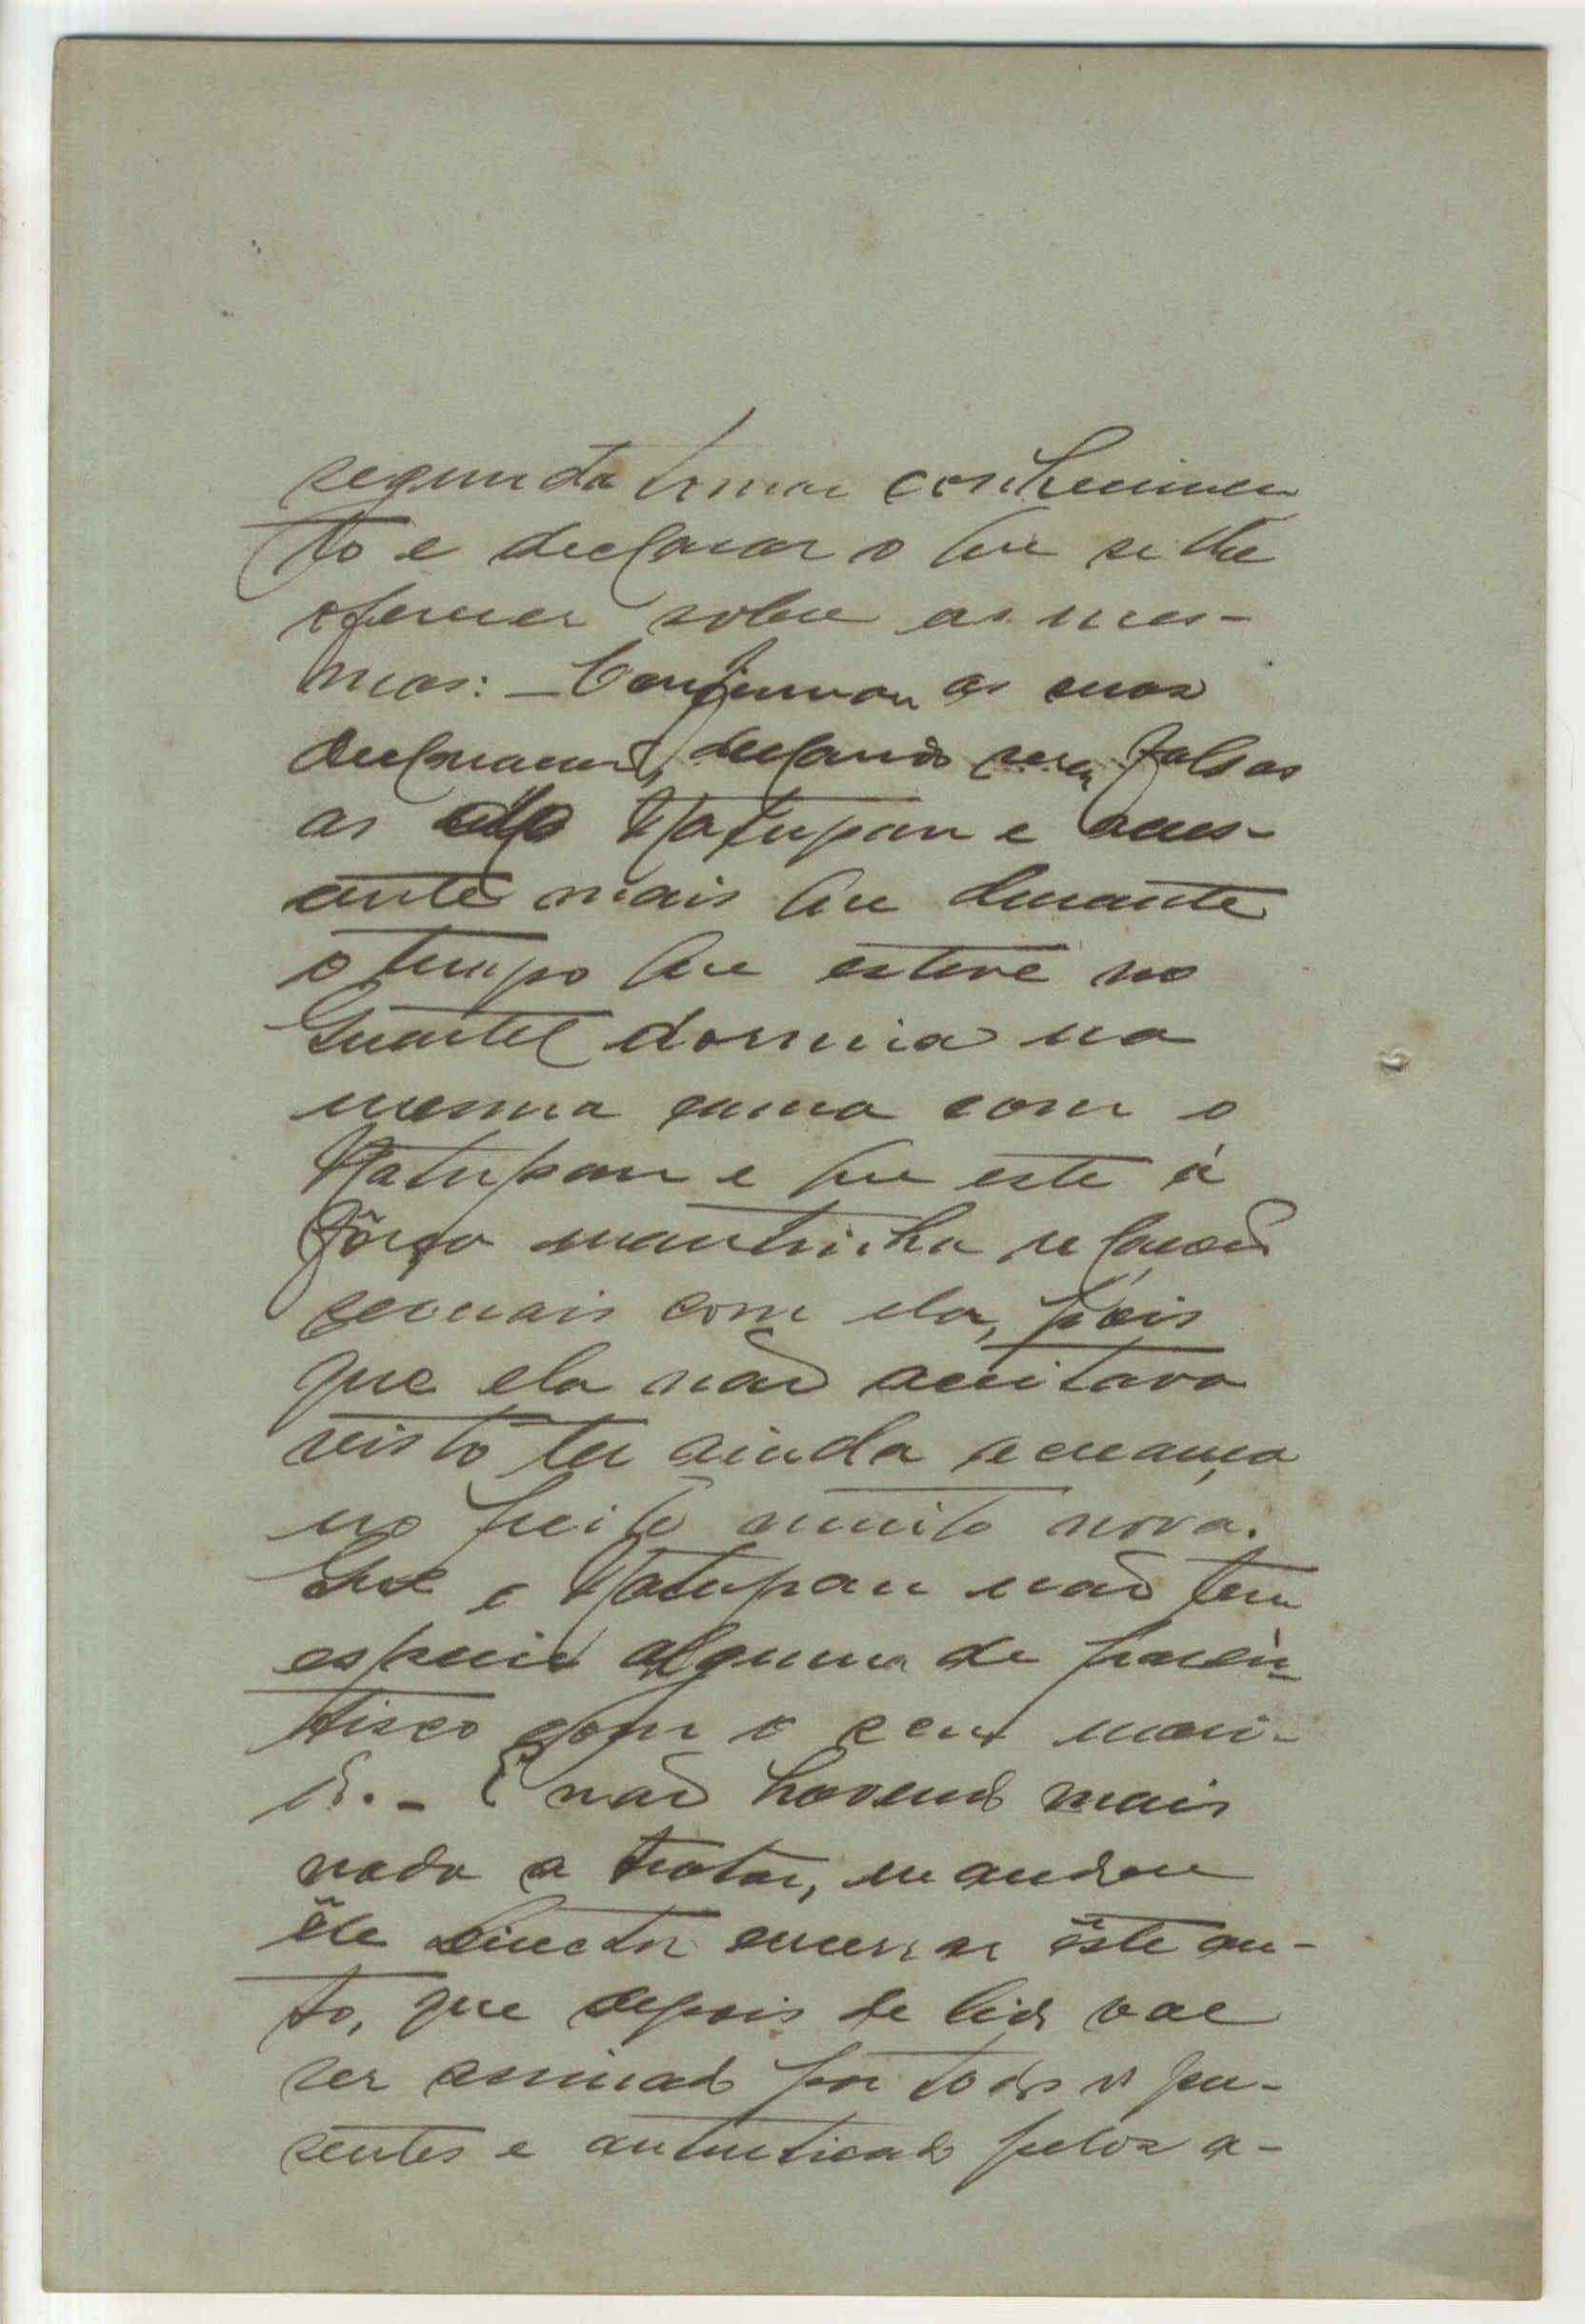 segunda tomar conhecimen
to e declarar o que se lhe
oferecer sobre as mes-
mas: — Confirmou as suas
declarações, declarando serem falsas
as do Hatupan e acres-
centa mais que durante
o tempo que esteve no
Quartel dormia na
mesma cama com o
Hatupan e que este á
fôrça mantinha relações
sexuais com ela, pois
que ela não aceitava
visto ter ainda a creança
no peito muito nova.
Que o Hatupan não tem
especie alguma de paren-
tisco com o seu mari-
do. - E não havendo mais
nada a tratar, mandou
êle Director encerrar êste au-
to, que depois de lido vae
ser assinado por todos os pre-
sentes e autenticado pelos a-